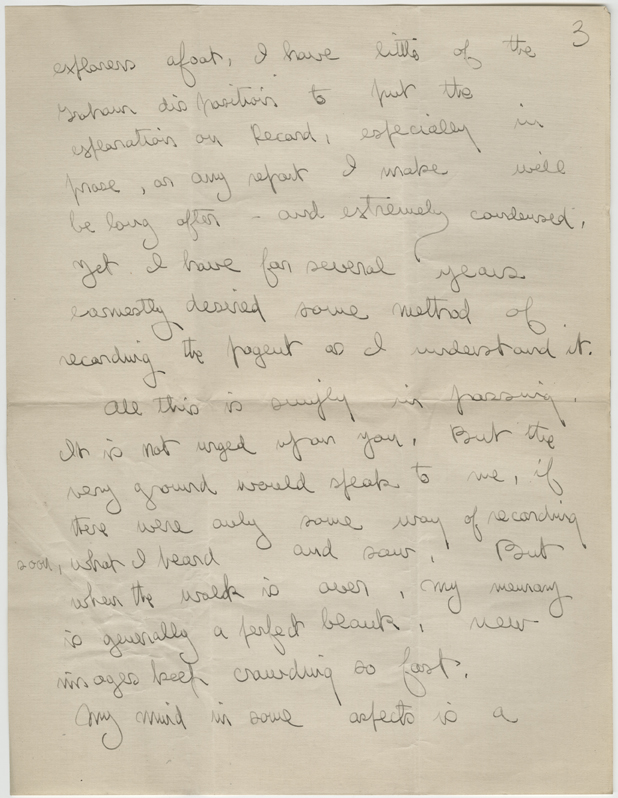 3
explorers afoot, I have little of the
human disposition to put the
explanation on Record, especially in
prose, or any report I make will
be long after - and extremely condensed.
Yet I have for several years
earnestly desired some method of
recording the pagent as I understand it.
All this is simply in passing.
It is not urged upon you. But the
very ground would speak to me, if
there were only some way of recording
soon, what I heard and saw. But
when the walk is over, my memory
is generally a perfect blank, new
images keep crowding so fast.
My mind in some aspects is a